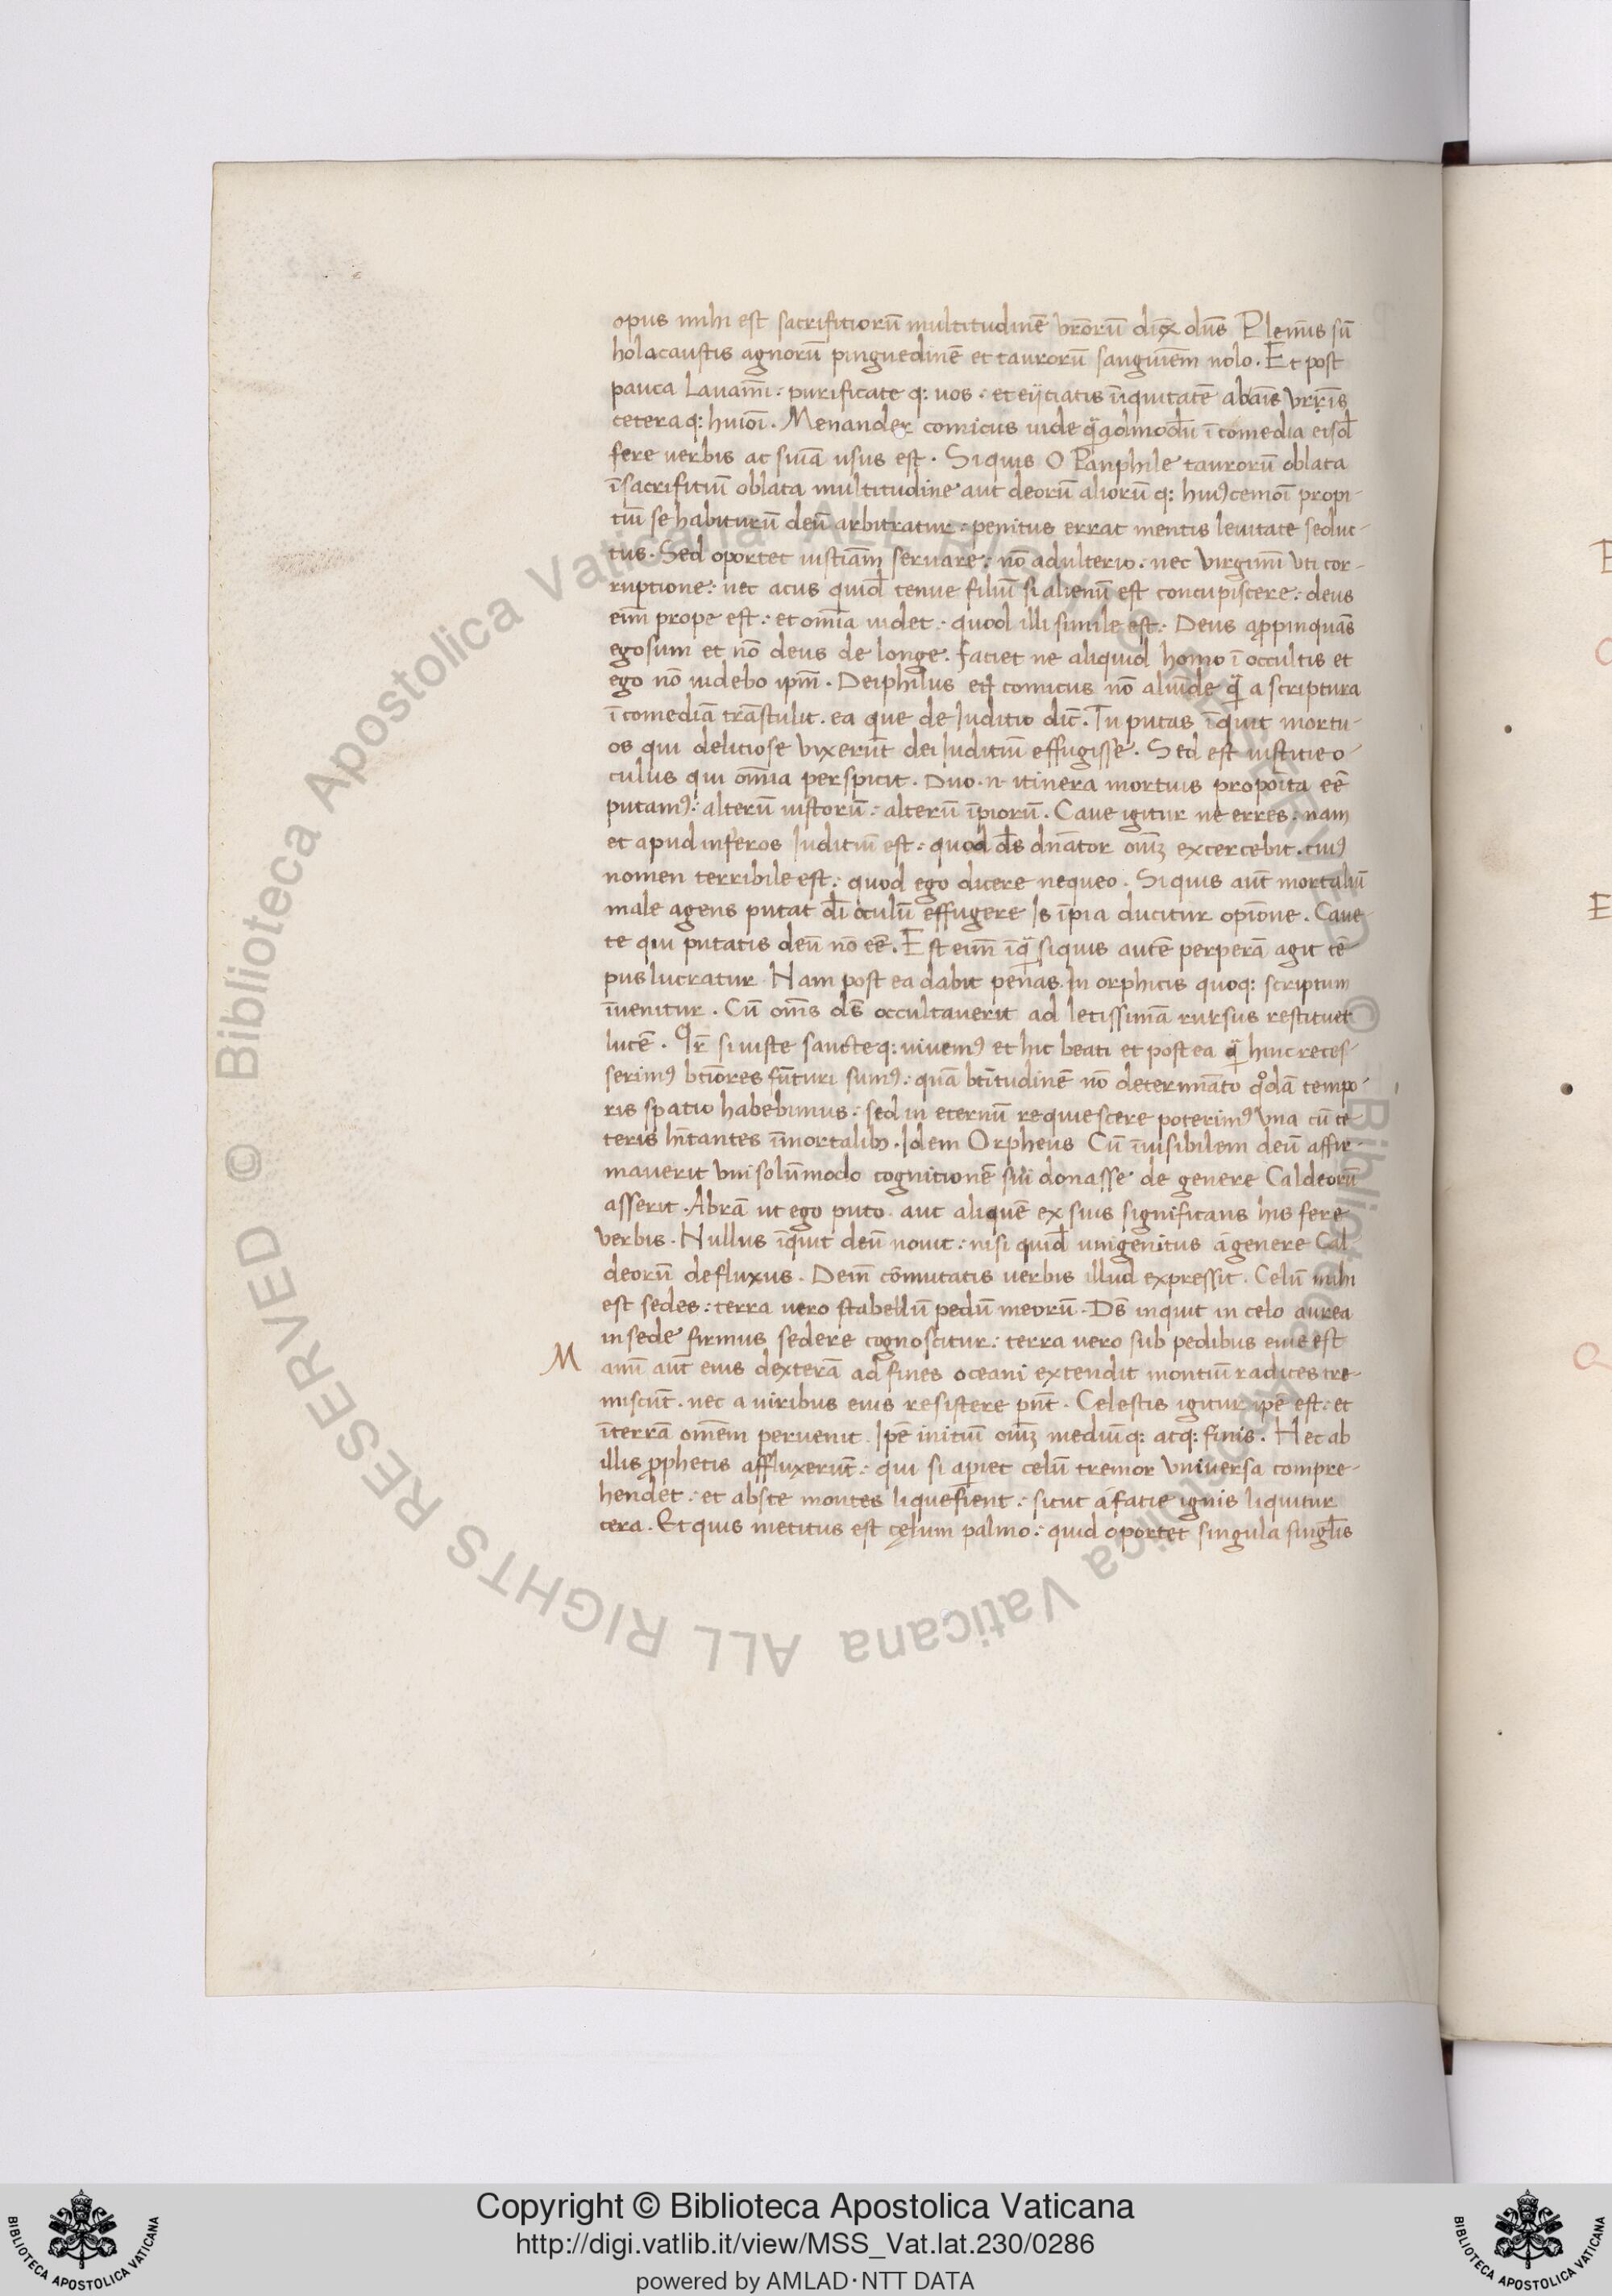 opus mihi est sacrifitiorū multitudinē vr̄orū dix̄ dn̄s Plenus sū
holacaustis agnorū pinguedinē et taurorū sanguiēm nolo. Et post
pauca Lauamī: purificate q: uos: et eijciatis īiquitatē ab aīs vr̄is
cetera q: huiōi. Menander comicus uide q̄admodū ī comedia eisd̄
fere uerbis ac suīa usus est. Si quis O Panphile taurorū oblata
ī sacrifitiū oblata multitudine aut deorū aliorū q: huiꝰcemoī propi-
tiū se habiturū deū arbitratur: penitus errat mentis leuitate seduc-
tus. Sed oportet iustiām seruare: nō adulterio. nec virginū vti cor-
ruptione: nec acus quid̄ tenue filiū si alienū est concupiscere: deus
eim̄ prope est: et omīa uidet: quod illi simile est: Deus appinquās
ego sum et nō deus de longe. faciet ne aliquid homo ī occultis et
ego nō uidebo ipm̄. Deiphilus et comicus nō aliūde q̄ a scriptura
ī comediā trāstulit. ea que de Iuditio dic̄. Tu putas īquit mortu-
os qui delitiose vixerūt dei Iuditiū effugisse. Sed est iustitie o-
culus qui omīa perspicit. Duo .n. itinera mortuis propoīta eē
putamꝰ: alterū iustorū: alterū īpiorū. Caue igitur ne erres: nam
et apud inferos Iuditiū est: quod ds̄ dn̄ator oīuꝫ excercebit. cuiꝰ
nomen terribile est: quod ego dicere nequeo. Si quis aūt mortaliū
male agens putat dī oculū effugere Is īpia ducitur opīone. Caue-
te qui putatis deū nō eē. Est eim̄ īq̄ si quis autē perperā agit tē
pus lucratur Nam post ea dabit penas. In orphicis quoq: scriptum
īuenitur. Cū om̄s ds̄ occultauerit ad letissimā rursus restituet
lucē. Qr̄ si iuste sancte q: uiuemꝰ et hic beati et post ea q̄ hinc reces-
serimꝰ btīores futuri sumꝰ: quā btītudinē nō determīato qᵒdā tempo-
ris spatio habebimus: sed in eternū requiescere poterimꝰ vna cū ce-
teris hītantes īmortalibꝫ. Idem Orpheus Cū īuisibilem deū affir-
mauerit vni solūmodo cognitionē sui donasse de genere Caldeorū
asserit. Abrā ut ego puto aut aliquē ex suis significans his fere
verbis. Nullus īquit deū nouit: nisi quid̄ unigenitus a genere Cal
deorū defluxus. Dem̄ cōmutatis uerbis illud expressit. Celū mihi
est sedes: terra uero stabellū pedū meorū. Ds̄ inquit in celo aurea
in sede firmus sedere cognoscitur: terra uero sub pedibus eius est
M anū aūt eius dexterā ad fines oceani extendit montiū radices tre-
miscūt. nec a uiribus eius resistere pn̄t. Celestis igitur ipē est: et
ī terrā omēm peruenit. Ipē initiū oīuꝫ mediū q: atq: finis. Hec ab
illis pphetis affluxerūt: qui si apiet celū tremor vniuersa compre-
hendet: et abs te montes liquefient: sicut a facie ignis liquitur
cera. Et quis metitus est cęlum palmo: quid oportet singula singl̄is
Copyright © Biblioteca Apostolica Vaticana
http://digi.vatlib.it/view/MSS_Vat.lat.230/0286
powered by AMLAD·NTT DATA